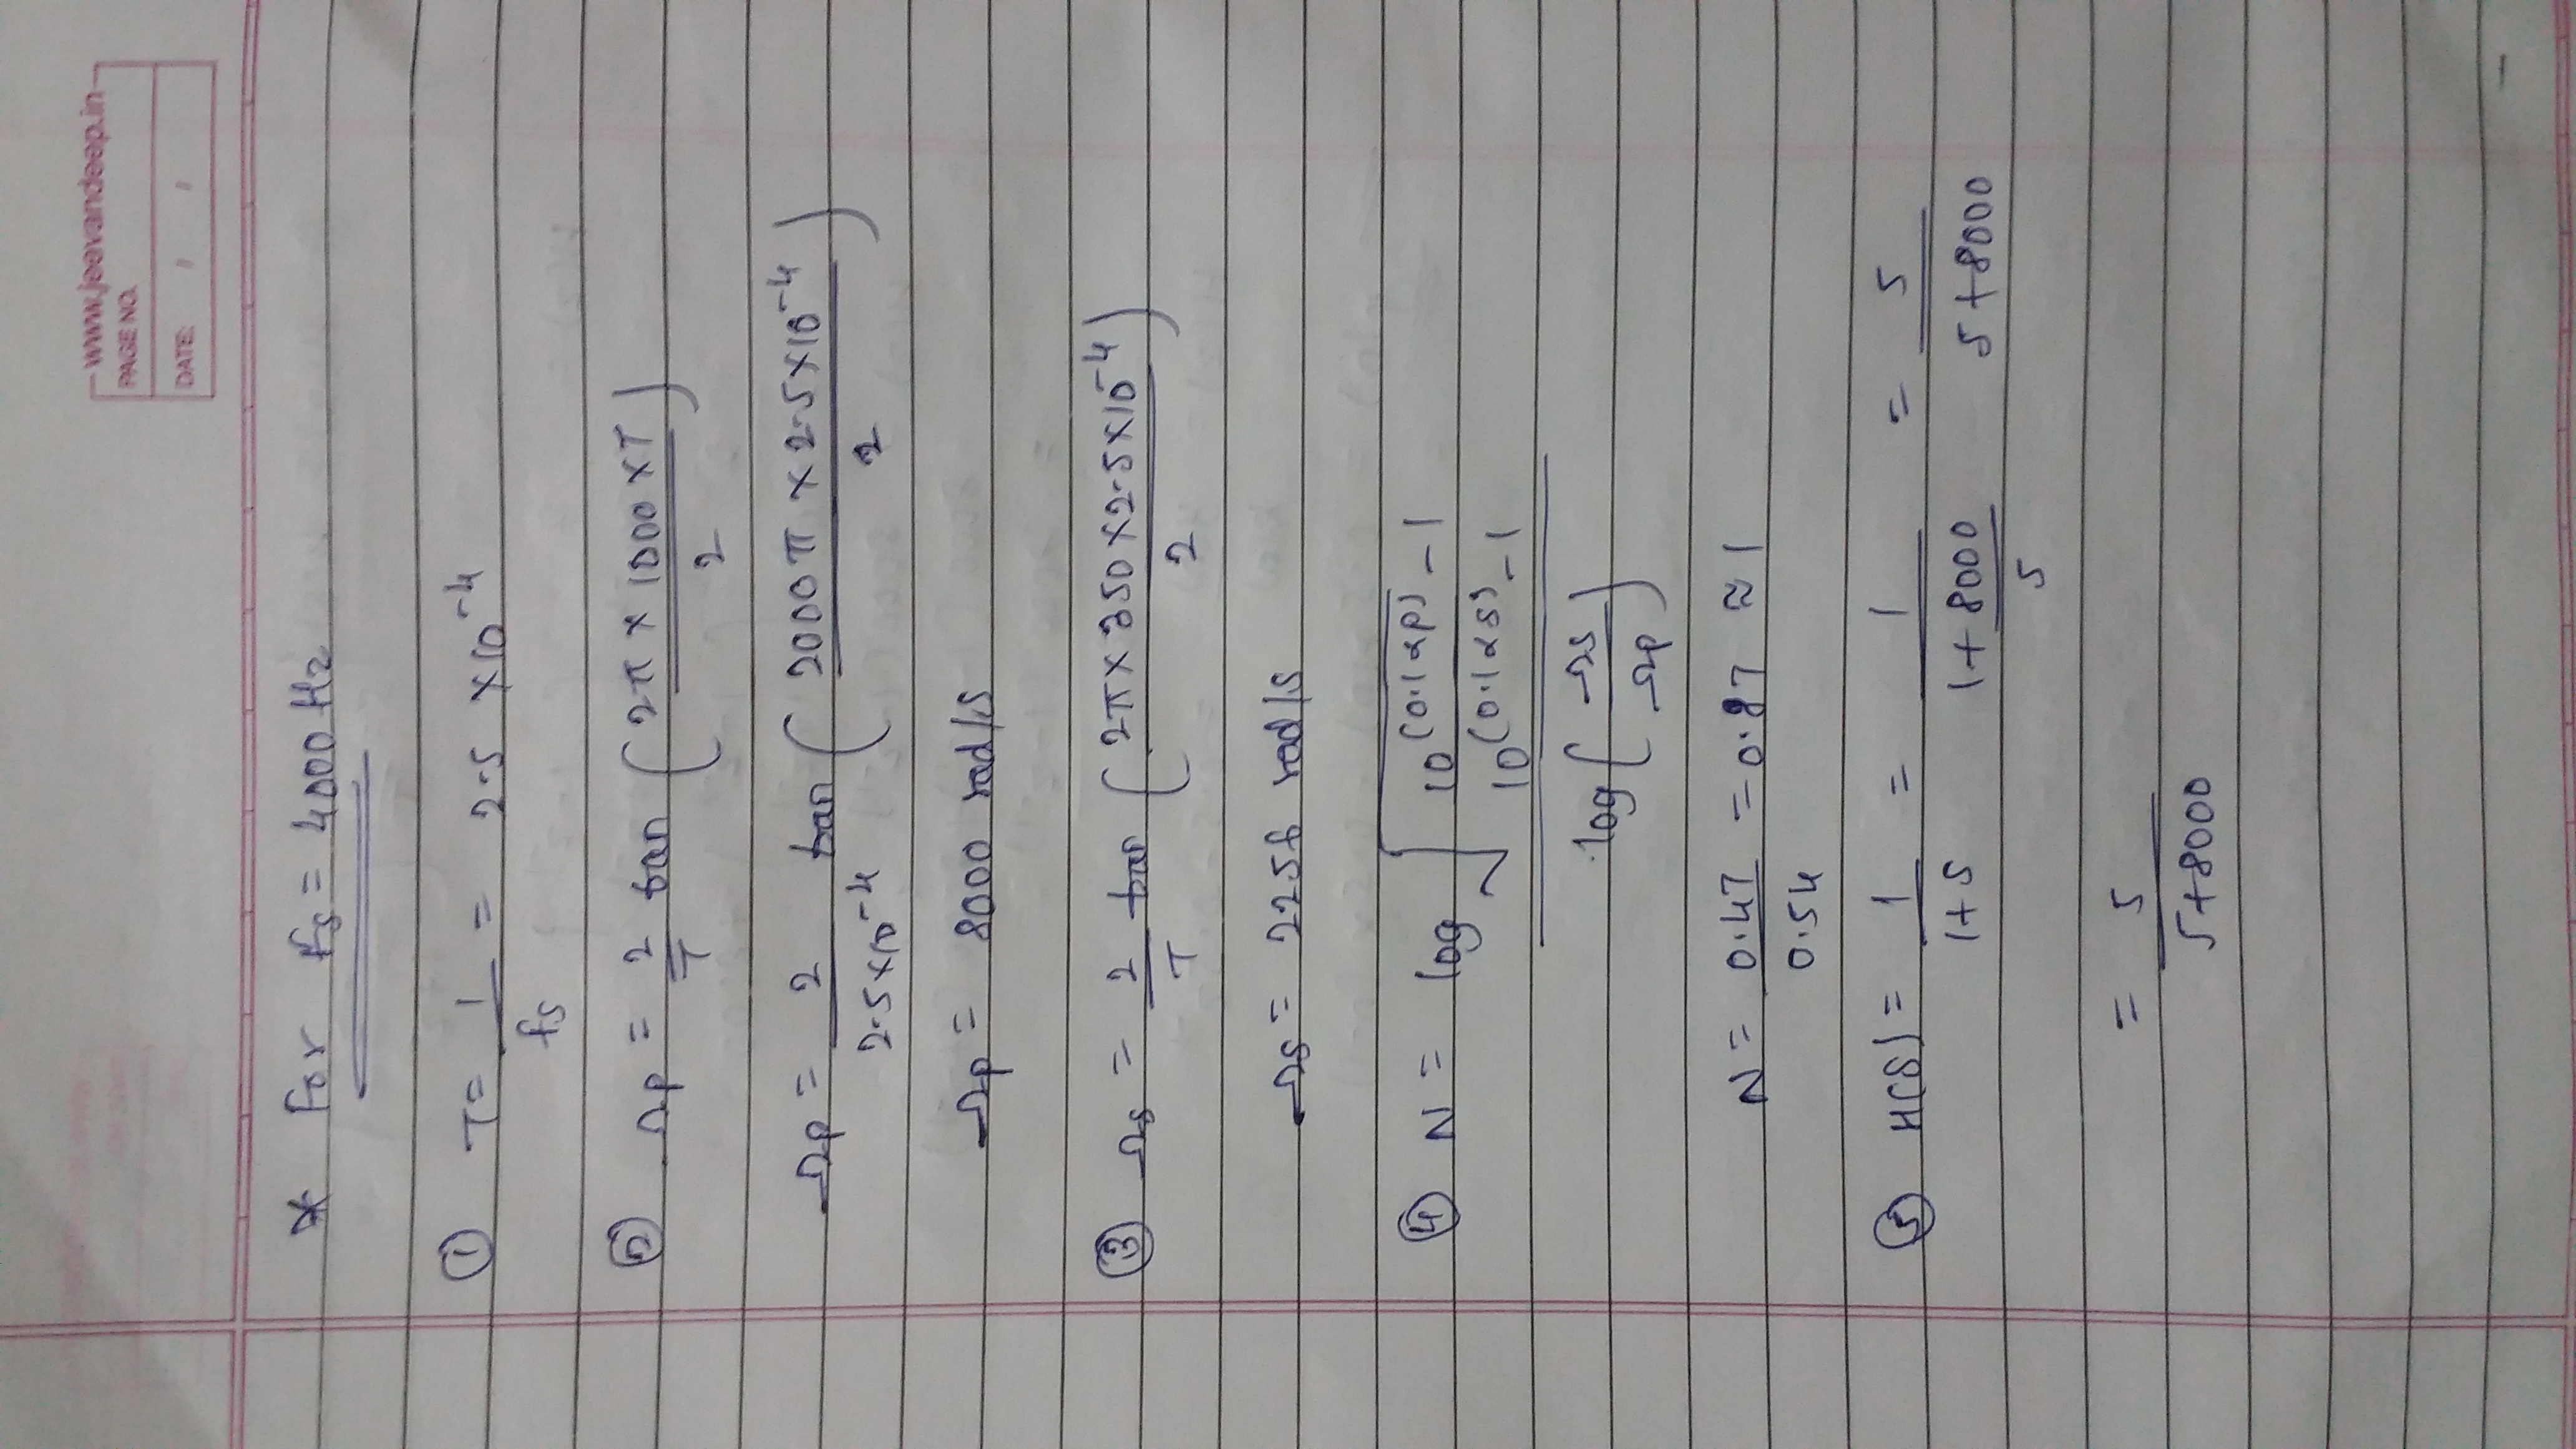 www.jeevandeep.in
PAGE NO.
DATE: / /
* For fs = 4000 Hz
① T = 1/fs = 2.5 × 10^-4
② Ωp = 2/T tan (2π × 1000 × T / 2)
Ωp = 2/(2.5×10^-4) tan (2000π × 2.5×10^-4 / 2)
Ωp = 8000 rad/s
③ Ωs = 2/T tan (2π × 350 × 2.5×10^-4 / 2)
Ωs = 2256 rad/s
④ N = log √(10^(0.1αp) - 1 / 10^(0.1αs) - 1) / log (Ωs/Ωp)
N = 0.47/0.54 = 0.87 ≈ 1
⑤ H(s) = 1/(1+s) = 1/(1 + 8000/s) = s/(s+8000)
= s/(s+8000)